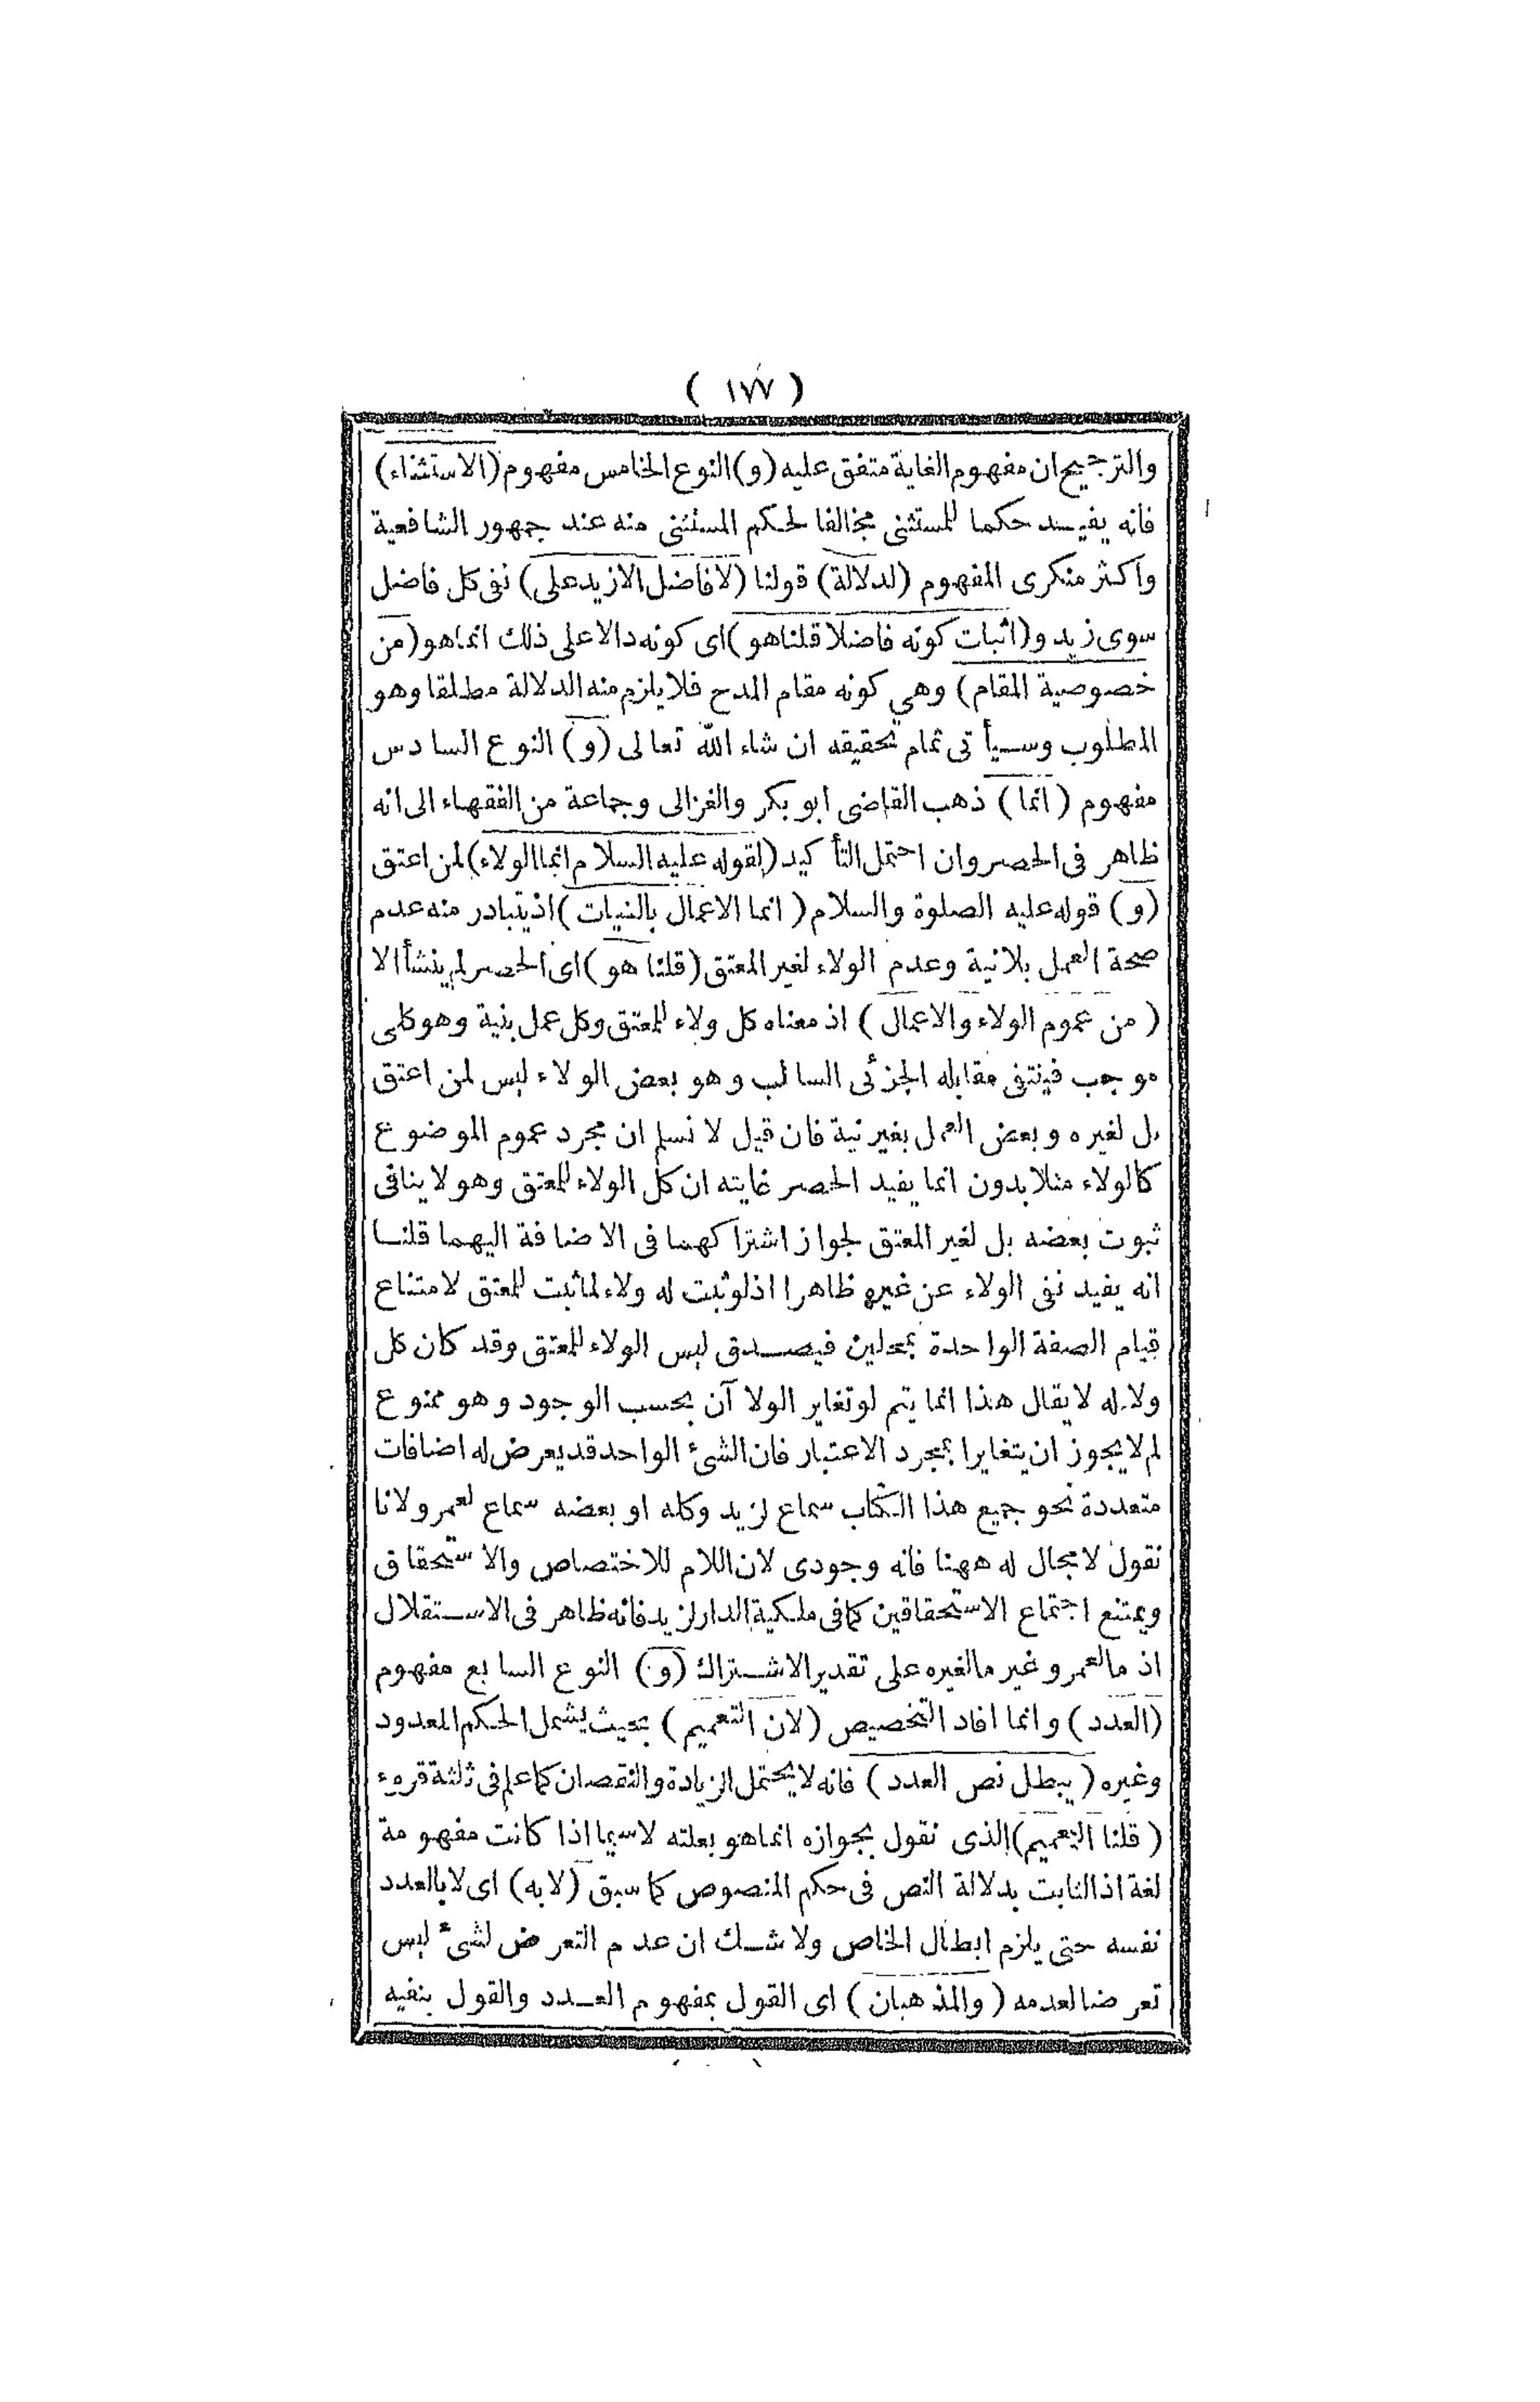 ( ١٧٧ )
والترجيح ان مفهوم الغاية متفق عليه (و) النوع الخامس مفهوم (الاستثناء)
فانه يفيد حكما للمستثنى مخالفا لحكم المستثنى منه عند جمهور الشافعية
واكثر منكرى المفهوم (لدلالة) قولنا (لا فاضل الا زيد على) نفى كل فاضل
سوى زيد و (اثبات كونه فاضلا قلنا هو) اى كونه دالا على ذلك انما هو (من
خصوصية المقام) وهى كونه مقام المدح فلا يلزم منه الدلالة مطلقا وهو
المطلوب وسيأتى تمام تحقيقه ان شاء الله تعالى (و) النوع السادس
مفهوم (انما) ذهب القاضى ابو بكر والغزالى وجماعة من الفقهاء الى انه
ظاهر فى الحصر وان احتمل التأكيد (لقوله عليه السلام انما الولاء) لمن اعتق
(و) قوله عليه الصلوة والسلام (انما الاعمال بالنيات) اذ يتبادر منه عدم
صحة العمل بلا نية وعدم الولاء لغير المعتق (قلنا هو) اى الحصر لم ينشأ الا
(من عموم الولاء والاعمال) اذ معناه كل ولاء للمعتق وكل عمل بنية وهو كلى
موجب فينتفى مقابله الجزئى السالب وهو بعض الولاء ليس لمن اعتق
بل لغيره وبعض العمل بغير نية فان قيل لا نسلم ان مجرد عموم الموضوع
كالولاء مثلا بدون انما يفيد الحصر غايته ان كل الولاء للمعتق وهو لا ينافى
ثبوت بعضه بل لغير المعتق لجواز اشتراكهما فى الاضافة اليهما قلنا
انه يفيد نفى الولاء عن غيره ظاهرا اذ لو ثبت له ولاء لما ثبت للمعتق لامتناع
قيام الصفة الواحدة بمحلين فيصدق ليس الولاء للمعتق وقد كان كل
ولاء له لا يقال هذا انما يتم لو تغاير الولاآن بحسب الوجود وهو ممنوع
لم لا يجوز ان يتغايرا بمجرد الاعتبار فان الشئ الواحد قد يعرض له اضافات
متعددة نحو جميع هذا الكتاب سماع لزيد وكله او بعضه سماع لعمرو لانا
نقول لا مجال له ههنا فانه وجودى لان اللام للاختصاص والاستحقاق
ويمتنع اجتماع الاستحقاقين كما فى ملكية الدار لزيد فانه ظاهر فى الاستقلال
اذ ما لعمرو غير ما لغيره على تقدير الاشتراك (و) النوع السابع مفهوم
(العدد) وانما افاد التخصيص (لان التعميم) بحيث يشمل الحكم المعدود
وغيره (يبطل نص العدد) فانه لا يحتمل الزيادة والنقصان كما علم فى ثلثة قروء
(قلنا التعميم) الذى نقول بجوازه انما هو بعلته لا سيما اذا كانت مفهومة
لغة اذ الثابت بدلالة النص فى حكم المنصوص كما سبق (لا به) اى لا بالعدد
نفسه حتى يلزم ابطال الخاص ولا شك ان عدم التعرض لشئ ليس
تعرضا لعدمه (والمذهبان) اى القول بمفهوم العدد والقول بنفيه